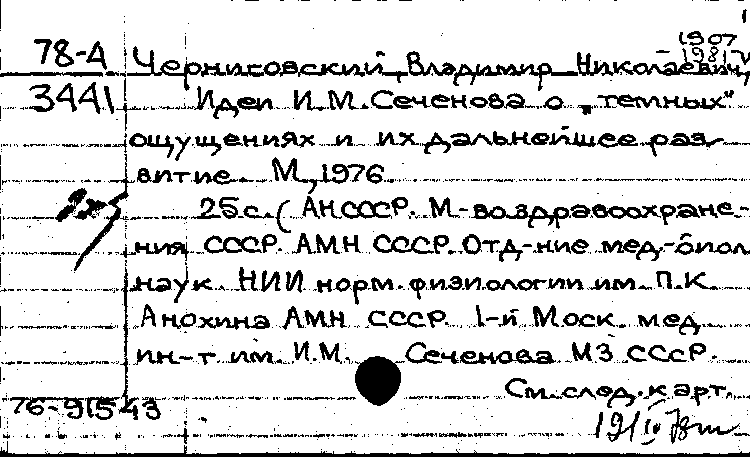 1
1907
- 1981 V
78-А Черниговский, Владимир Николаевич,
3441 Идеи И.М. Сеченова о „темных"
ощущениях и их дальнейшее раз-
витие. М, 1976.
25с. (АН СССР. М-во здравоохране-
ния СССР. АМН СССР. Отд-ние мед.-биол
наук. НИИ норм. физиологии им. П.К.
Анохина АМН СССР. 1-й Моск. мед
ин-т им. И.М. Сеченова МЗ СССР.
См. след. карт.
76-91543
19/IV 78